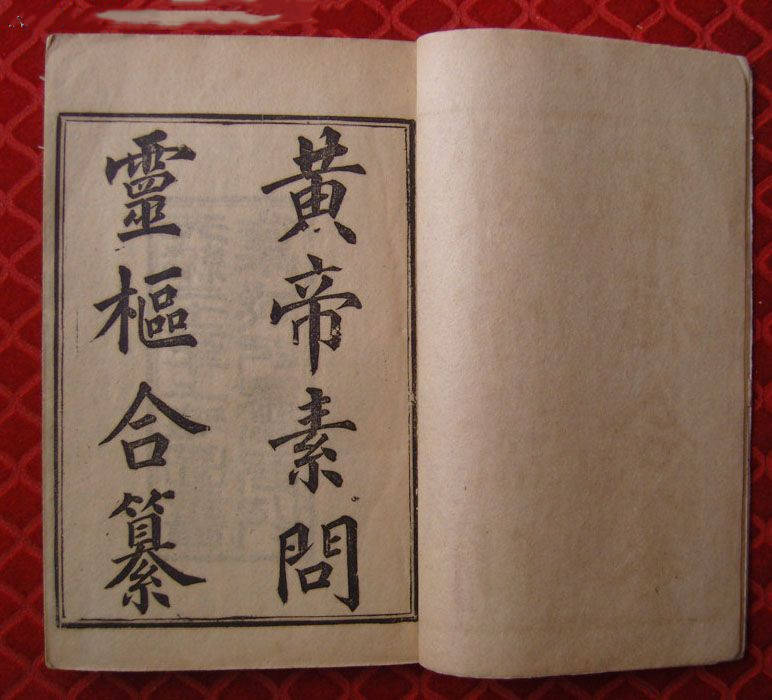 黃帝素問
靈樞合纂